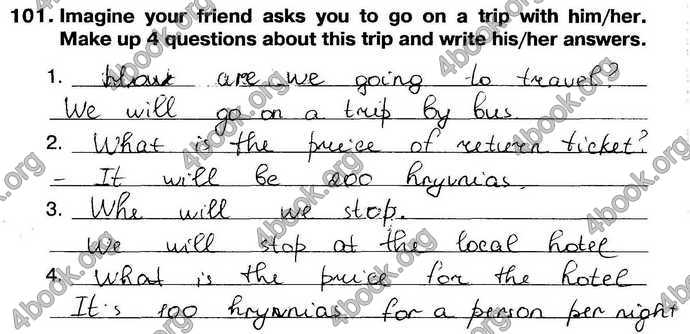 101. Imagine your friend asks you to go on a trip with him/her.
Make up 4 questions about this trip and write his/her answers.
1. How are we going to travel?
We will go on a trip by bus.
2. What is the price of return ticket?
- It will be 200 hryvnias.
3. Whe will we stop.
We will stop at the local hotel
4. What is the price for the hotel
It's 100 hryvnias for a person per night
4book.org